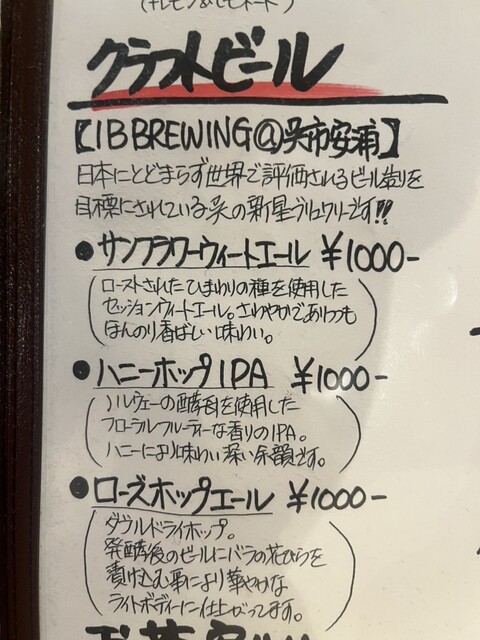 クラフトビール
【IB BREWING@呉市安浦】
日本にとどまらず世界で評価されるビール造りを
目標にされている呉の新星ブルワリーです!!
●サンフラワーウィートエール ¥1000-
(ローストされたひまわりの種を使用した
セッションウィートエール。さわやかでありつつも
ほんのり香ばしい味わい。)
●ハニーホップIPA ¥1000-
(ノルウェーの酵母を使用した
フローラルフルーティーな香りのIPA。
ハニーにより味わい深い余韻です。)
●ローズホップエール ¥1000-
(ダブルドライホップ。
発酵後のビールにバラの花びらを
漬け込む事により華やかな
ライトボディーに仕上がってます。)